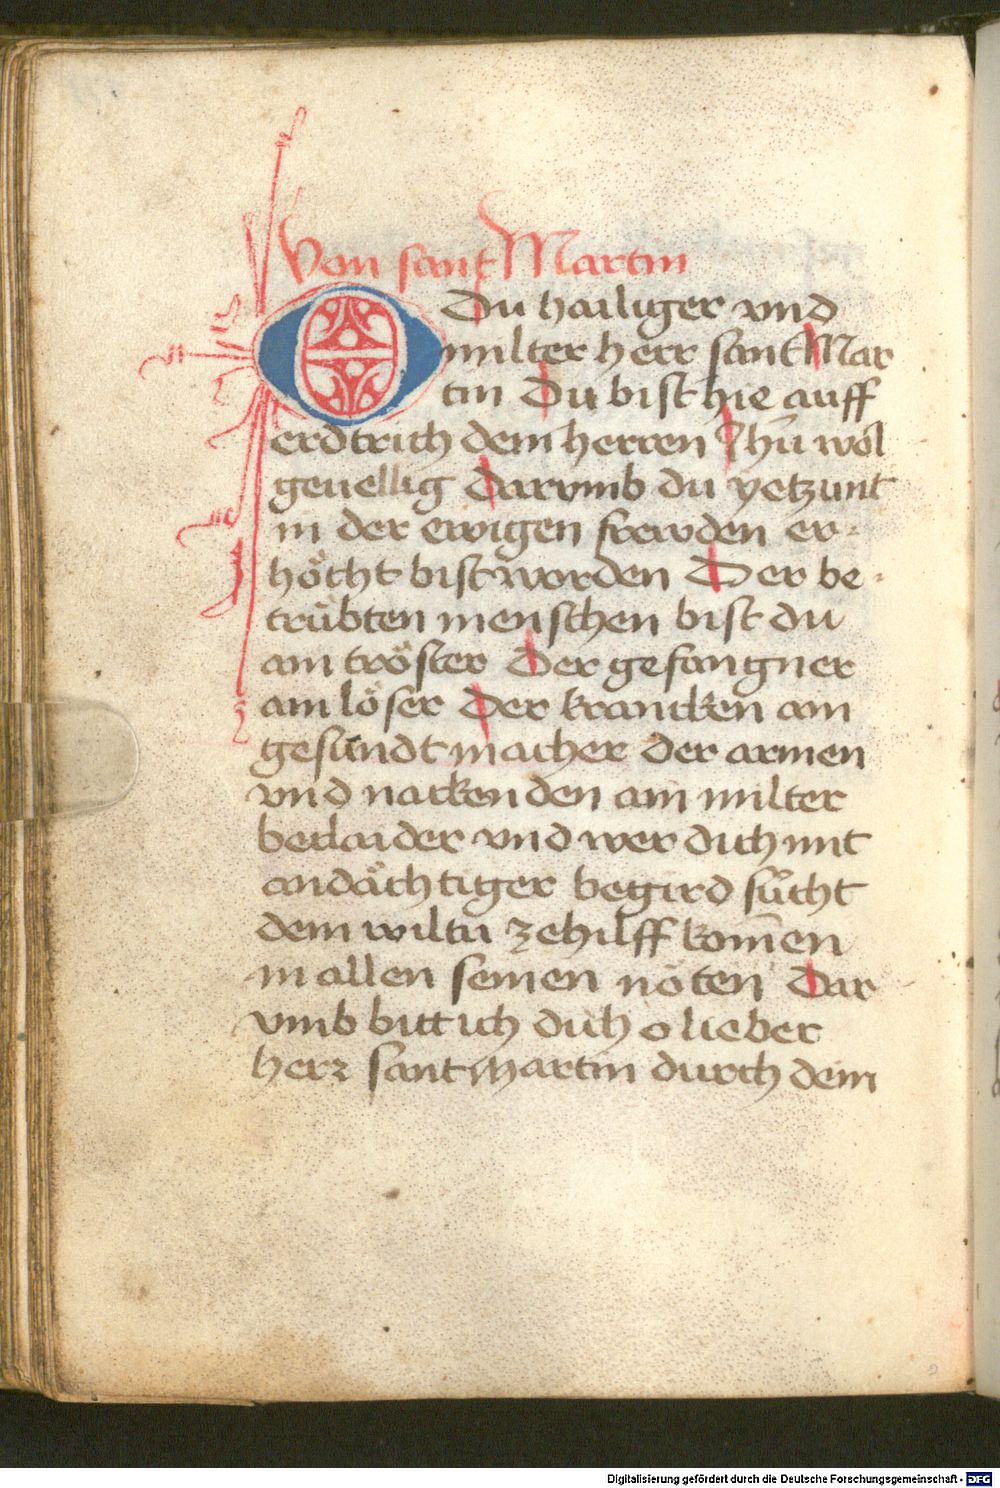 Von sant Martin
O Du hailiger vnd
milter herr sant Mar
tin Du bist hie auff
erdtrich dem herren Jhu̅ wol
geuellig Darvmb du yetzunt
in der ewigen frewden er-
höcht bist worden Der be-
trübten menschen bist du
ain tröster Der gefangner
ain löser Der krancken ain
gesundt macher der armen
vnd nackenden ain milter
beclaider vnd wer dich mit
andächtiger begird sücht
dem wiltu ze hilff kom̅en
in allen seinen nöten Dar
vmb bitt ich dich o lieber
herz sant Martin durch dein
Digitalisierung gefördert durch die Deutsche Forschungsgemeinschaft - DFG